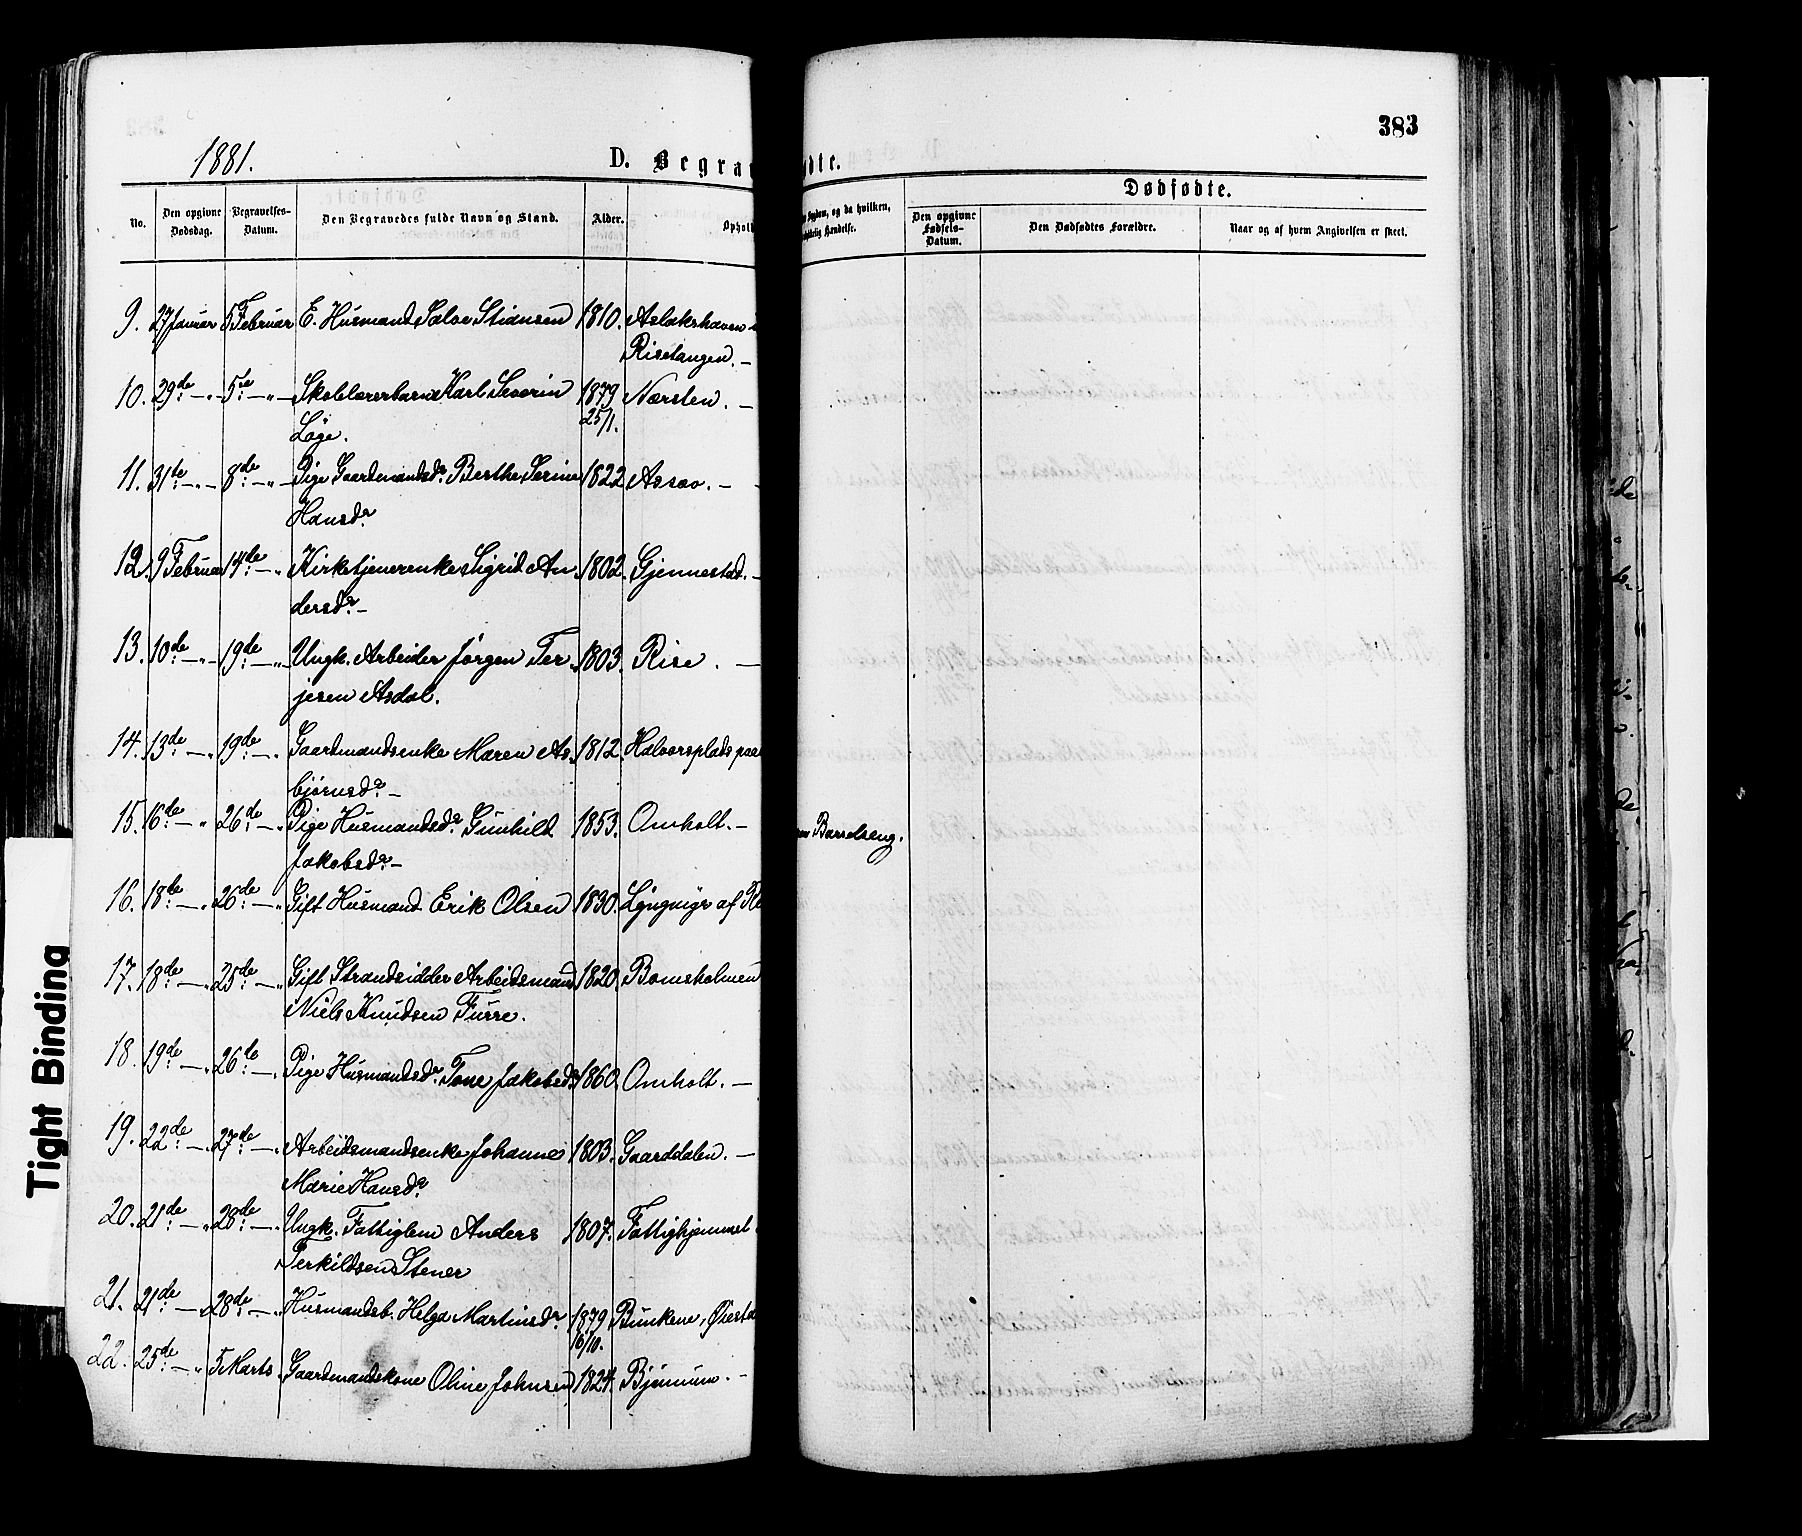 1881.
D. Begra
ødte.
383
Dødfødte.
No.
Den opgivne Dødsdag.
Begravelses-Datum.
Den Begravedes fulde Navn og Stand.
Alder.
Ophold
Sygdom, og da hvilken,
Hændelse.
Den opgivne Fødsels-Datum.
Den Dødfødtes Forældre.
Naar og af hvem Angivelsen er skeet.
9. 27 Januar 5 Februar E. Husmand Salve Stiansen 1810. Aslakshaven
Risetangen. –
10. 29de – " – 5te – " – Skolelærerbarn Karl Severin 1879 Nærsten. –
Løge. 25/1.
11. 31te – " – 8de – " – Pige Gaardmandsdr. Berthe Serine 1822 Assæv. –
Hansdr.
12. 9 Februar 14de – " Kirketjenerenke Sigrid An 1802. Gjennestad. –
dersdr. –
13. 10de – " – 19de – " – Ungk. Arbeider Jørgen Ter 1803. Rise. –
jesen Asdal.
14. 13de – " 19de – " Gaardmandsenke Maren As 1812. Halvorsplads paa
bjørnsdr. –
15. 16de – " 26de – " Pige Husmandsdr. Gunhild 1853. Omholt. –
Jakobsdr. –
Barselseng.
16. 18de – " 26de – " Gift Husmand Erik Olsen 1830. Lyngmyr af
17. 18de – " 25de – " Gift Strandsidder Arbeidsmand 1820. Bomsholmen
Niels Knudsen Furre.
18. 19de – " 26de – " Pige Husmandsdr. Tone Jakobsdr 1860. Omholt. –
19. 22de – " 27de – " Arbeidsmandsenke Johanne 1803. Gaarddalen. –
Marie Hansdr.
20. 21de – " 28de – " Ungk. Fattiglem Anders 1807. Fattighjemmet
Terkildsen Stener
21. 21de – " 28de – " Husmandsb. Helga Martinsdr. 1879 Bunkene, Øiesta
16/10.
22. 25de – " 5 Marts Gaardmandskone Oline Johnsen 1824. Bjønnum. –
Tight Binding